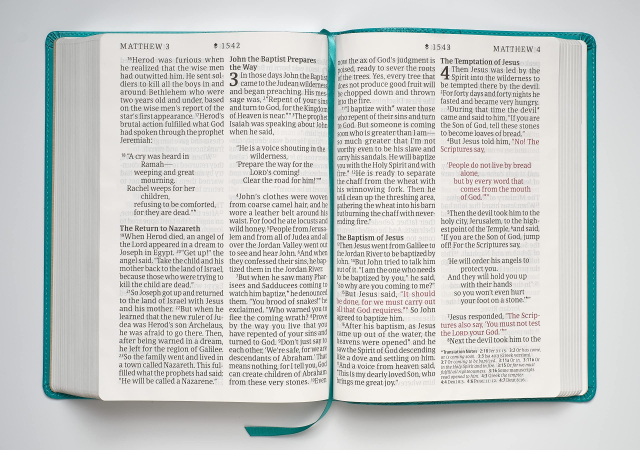 MATTHEW 3
1542
16Herod was furious when
he realized that the wise men
had outwitted him. He sent sol-
diers to kill all the boys in and
around Bethlehem who were
two years old and under, based
on the wise men's report of the
star's first appearance. 17Herod's
brutal action fulfilled what God
had spoken through the prophet
Jeremiah:
18 "A cry was heard in
Ramah—
weeping and great
mourning.
Rachel weeps for her
children,
refusing to be comforted,
for they are dead."
The Return to Nazareth
19When Herod died, an angel of
the Lord appeared in a dream to
Joseph in Egypt. 20"Get up!" the
angel said. "Take the child and his
mother back to the land of Israel,
because those who were trying to
kill the child are dead."
21So Joseph got up and returned
to the land of Israel with Jesus
and his mother. 22But when he
learned that the new ruler of Ju-
dea was Herod's son Archelaus,
he was afraid to go there. Then,
after being warned in a dream,
he left for the region of Galilee.
23So the family went and lived in
a town called Nazareth. This ful-
filled what the prophets had said:
"He will be called a Nazarene."
John the Baptist Prepares
the Way
3 In those days John the Baptist
came to the Judean wilderness
and began preaching. His mes-
sage was, 2"Repent of your sins
and turn to God, for the Kingdom
of Heaven is near." 3The prophet
Isaiah was speaking about John
when he said,
"He is a voice shouting in the
wilderness,
'Prepare the way for the
LORD's coming!
Clear the road for him!'"
4John's clothes were woven
from coarse camel hair, and he
wore a leather belt around his
waist. For food he ate locusts and
wild honey. 5People from Jerusa-
lem and from all of Judea and all
over the Jordan Valley went out
to see and hear John. 6And when
they confessed their sins, he bap-
tized them in the Jordan River.
7But when he saw many Phar-
isees and Sadducees coming to
watch him baptize, he denounced
them. "You brood of snakes!" he
exclaimed. "Who warned you to
flee the coming wrath? 8Prove
by the way you live that you
have repented of your sins and
turned to God. 9Don't just say to
each other, 'We're safe, for we are
descendants of Abraham.' That
means nothing, for I tell you, God
can create children of Abraham
from these very stones. 10Even
1543
MATTHEW 4
now the ax of God's judgment is
poised, ready to sever the roots
of the trees. Yes, every tree that
does not produce good fruit will
be chopped down and thrown
into the fire.
11"I baptize with water those
who repent of their sins and turn
to God. But someone is coming
soon who is greater than I am—
so much greater that I'm not
worthy even to be his slave and
carry his sandals. He will baptize
you with the Holy Spirit and with
fire. 12He is ready to separate
the chaff from the wheat with
his winnowing fork. Then he
will clean up the threshing area,
gathering the wheat into his barn
but burning the chaff with never-
ending fire."
The Baptism of Jesus
13Then Jesus went from Galilee to
the Jordan River to be baptized by
John. 14But John tried to talk him
out of it. "I am the one who needs
to be baptized by you," he said,
"so why are you coming to me?"
15But Jesus said, "It should
be done, for we must carry out
all that God requires." So John
agreed to baptize him.
16After his baptism, as Jesus
came up out of the water, the
heavens were opened and he
saw the Spirit of God descending
like a dove and settling on him.
17And a voice from heaven said,
"This is my dearly loved Son, who
brings me great joy."
The Temptation of Jesus
4 Then Jesus was led by the
Spirit into the wilderness to
be tempted there by the devil.
2For forty days and forty nights he
fasted and became very hungry.
3During that time the devil
came and said to him, "If you are
the Son of God, tell these stones
to become loaves of bread."
4But Jesus told him, "No! The
Scriptures say,
'People do not live by bread
alone,
but by every word that
comes from the mouth
of God.'"
5Then the devil took him to the
holy city, Jerusalem, to the high-
est point of the Temple, 6and said,
"If you are the Son of God, jump
off! For the Scriptures say,
'He will order his angels to
protect you.
And they will hold you up
with their hands
so you won't even hurt
your foot on a stone.'"
7Jesus responded, "The Scrip-
tures also say, 'You must not test
the LORD your God.'"
8Next the devil took him to the
Translation Notes